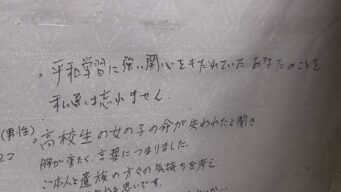 。平和学習に強い関心をもたれていた、あなたのことを
私達は忘れません。
(男性)
。高校生の女の子の命が失われたと聞き、
胸が重たく、言葉につまりました。
ご本人と遺族の方々の気持ちを考え
思いです。